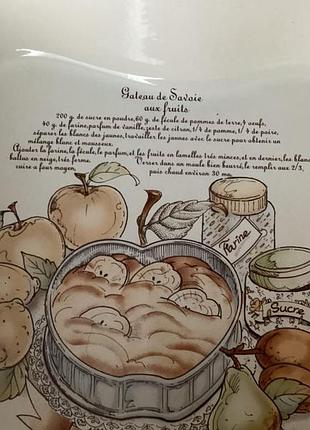 Gateau de Savoie
aux fruits
200 g. de sucre en poudre,60 g. de fécule de pommes de terre,4 oeufs,
40 g. de farine,parfum de vanille,zeste de citron,1/4 de pomme,1/4 de poire,
séparer les blancs des jaunes,travailler les jaunes avec le sucre pour obtenir un
mélange blanc et mousseux.
Ajouter la farine,la fécule,le parfum,et les fruits en lamelles très minces,et en dernier,les blanc
battus en neige,très ferme. Verser dans un moule bien beurré,le remplir aux 2/3,
cuire a four moyen, puis chaud environ 30 mn.
Farine
Sucre